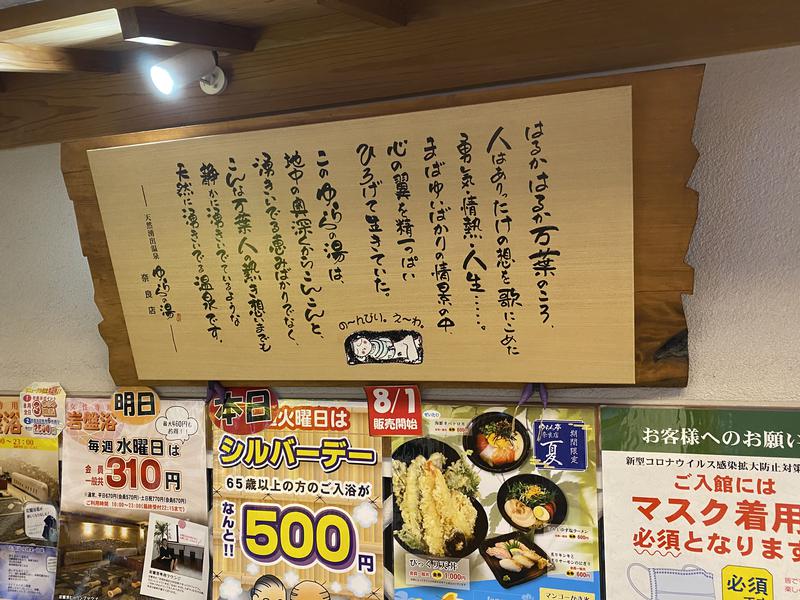 はるかはるか万葉のころ、
人はありったけの想を歌にこめた
勇気・情熱・人生……。
まばゆいばかりの情景の中、
心の翼を精一っぱい
ひろげて生きていた。
このゆららの湯は、
地中の奥深くからこんこんと、
湧きいでる恵みばかりでなく、
こんな万葉人の熱き想いまでも
静かに湧きいでているような
天然に湧きいでる温泉です。
天然湧出温泉
ゆららの湯
奈良店
の〜んびり。え〜わ。
岩盤浴
明日
毎週水曜日は
会員
一般共
310円
本日
火曜日は
シルバーデー
65歳以上の方のご入浴が
なんと!!
500円
8/1
販売開始
期間限定
夏
びっくり天丼
1,000円
600円
マンゴーかき氷
お客様へのお願い
新型コロナウイルス感染拡大防止対策
ご入館には
マスク着用
必須となります
必須